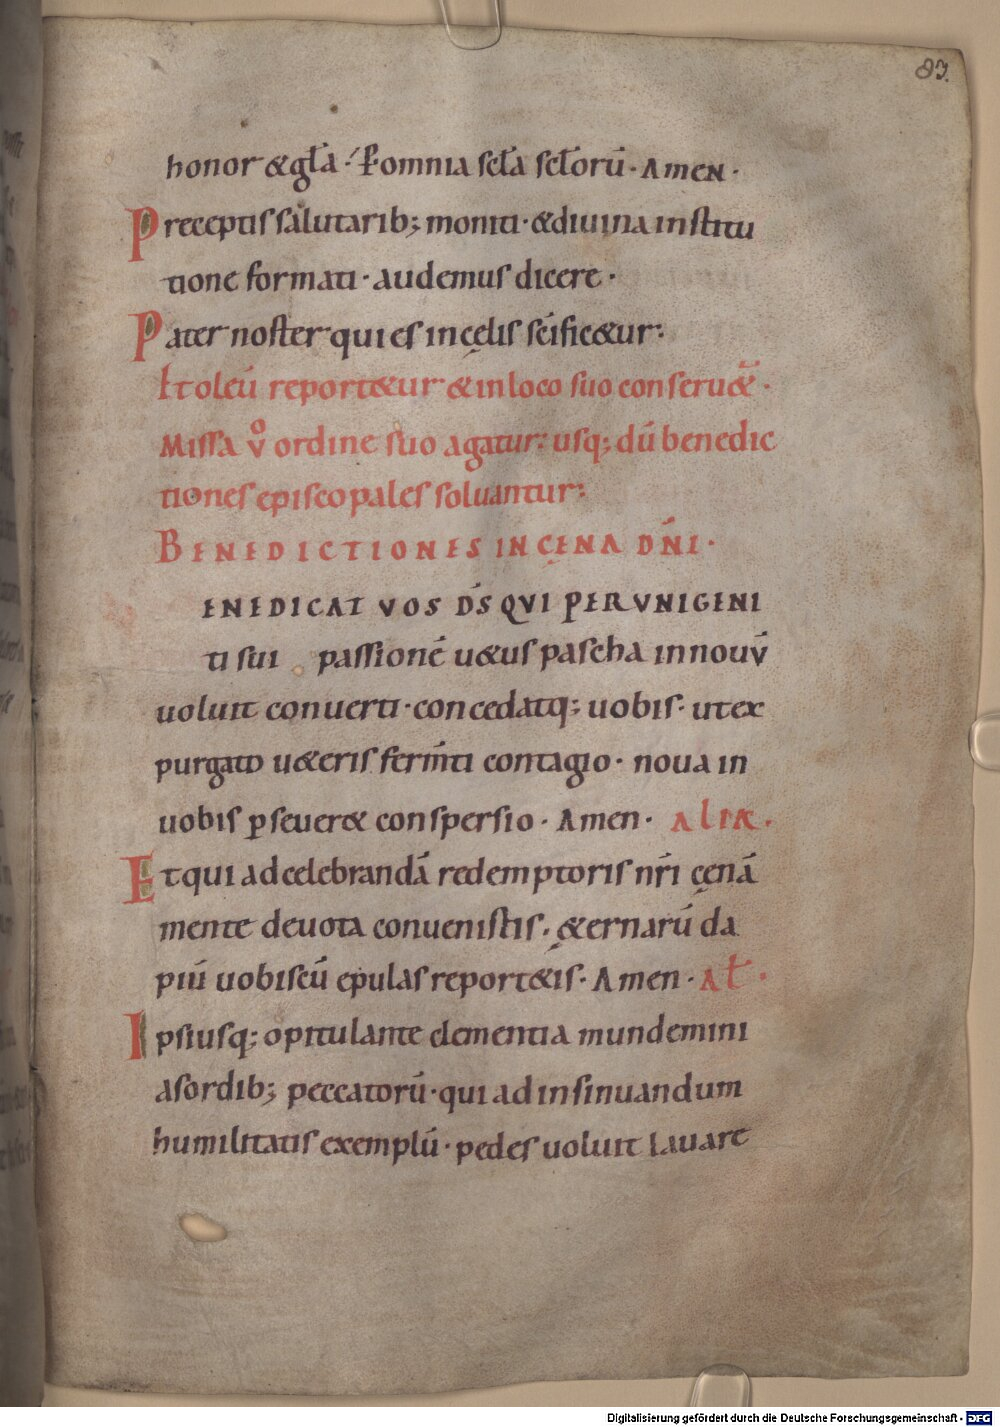 83.
honor & gła · P̄ omnia scła scłorū · Amen ·
Preceptis salutarib; moniti · & diuina institu
tione formati · audemus dicere ·
Pater noster qui es in cęlis sc̄ific&ur:
Et oleū report&ur & in loco suo conseru&ur ·
Missa v̊ ordine suo agatur: usq; dū benedic
tiones episcopales soluantur:
BENEDICTIONES IN CĘNA DN̄I ·
ENEDICAT VOS DS̄ QVI PER VNIGENI
ti sui passionē u&us pascha in nouū
uoluit conuerti · concedatq; uobis · ut ex
purgato u&eris ferm̄ti contagio · noua in
uobis ꝑseuer& conspersio · Amen · alia ·
Et qui ad celebrandā redemptoris nr̄i cęnā
mente deuota conuenistis · ę&ernarū da
piū uobiscū epulas report&is · Amen · Ał ·
Ipsiusq; opitulante clementia mundemini
a sordib; peccatorū · qui ad insinuandum
humilitatis exemplū · pedes uoluit lauare
Digitalisierung gefördert durch die Deutsche Forschungsgemeinschaft - DFG